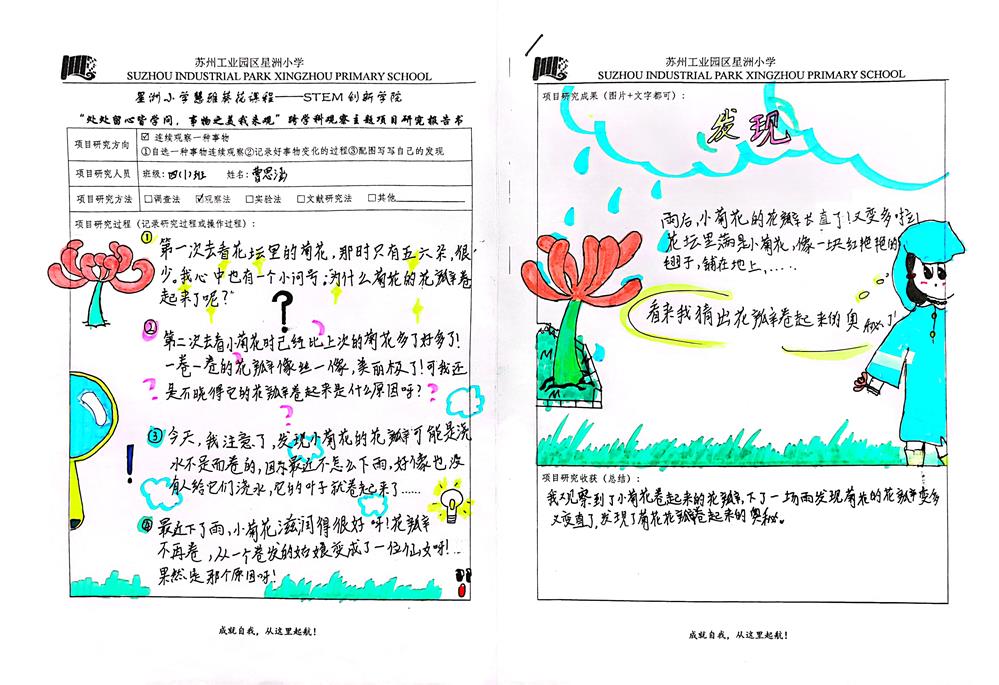 苏州工业园区星洲小学
SUZHOU INDUSTRIAL PARK XINGZHOU PRIMARY SCHOOL
星洲小学慧雅葵花课程——STEM创新学院
“处处留心皆学问，事物之美我来观”跨学科观察主题项目研究报告书
项目研究方向
☑ 连续观察一种事物
①自选一种事物连续观察②记录好事物变化的过程③配图写写自己的发现
项目研究人员 班级：四(1)班 姓名：曹思涵
项目研究方法 □调查法 ☑观察法 □实验法 □文献研究法 □其他
项目研究过程（记录研究过程或操作过程）：
①
第一次去看花坛里的菊花，那时只有五六朵，很
少。我心中也有一个小问号：为什么菊花的花瓣卷
起来了呢？
?
②
第二次去看小菊花时已经比上次的菊花多了好多了！
一卷一卷的花瓣像丝一像，美丽极了！可我还
是不晓得它的花瓣卷起来是什么原因呀？
③
今天，我注意了，发现小菊花的花瓣可能是浇
水不足而卷的，因为最近不怎么下雨，好像也没
有人给它们浇水，它的叶子就卷起来了……
!
④
最近下了雨，小菊花滋润得很好呀！花瓣
不再卷，从一个卷发的姑娘变成了一位仙女呀！
果然是那个原因呀！
成就自我，从这里起航！
苏州工业园区星洲小学
SUZHOU INDUSTRIAL PARK XINGZHOU PRIMARY SCHOOL
项目研究成果（图片+文字都可）：
发现
雨后，小菊花的花瓣长直了！又变多啦！
花坛里满是小菊花，像一块红艳艳的
毯子，铺在地上，……
看来我猜出花瓣卷起来的奥秘了！
项目研究收获（总结）：
我观察到了小菊花卷起来的花瓣，下了一场雨发现菊花的花瓣变多
又变直了，发现了菊花花瓣卷起来的奥秘。
成就自我，从这里起航！